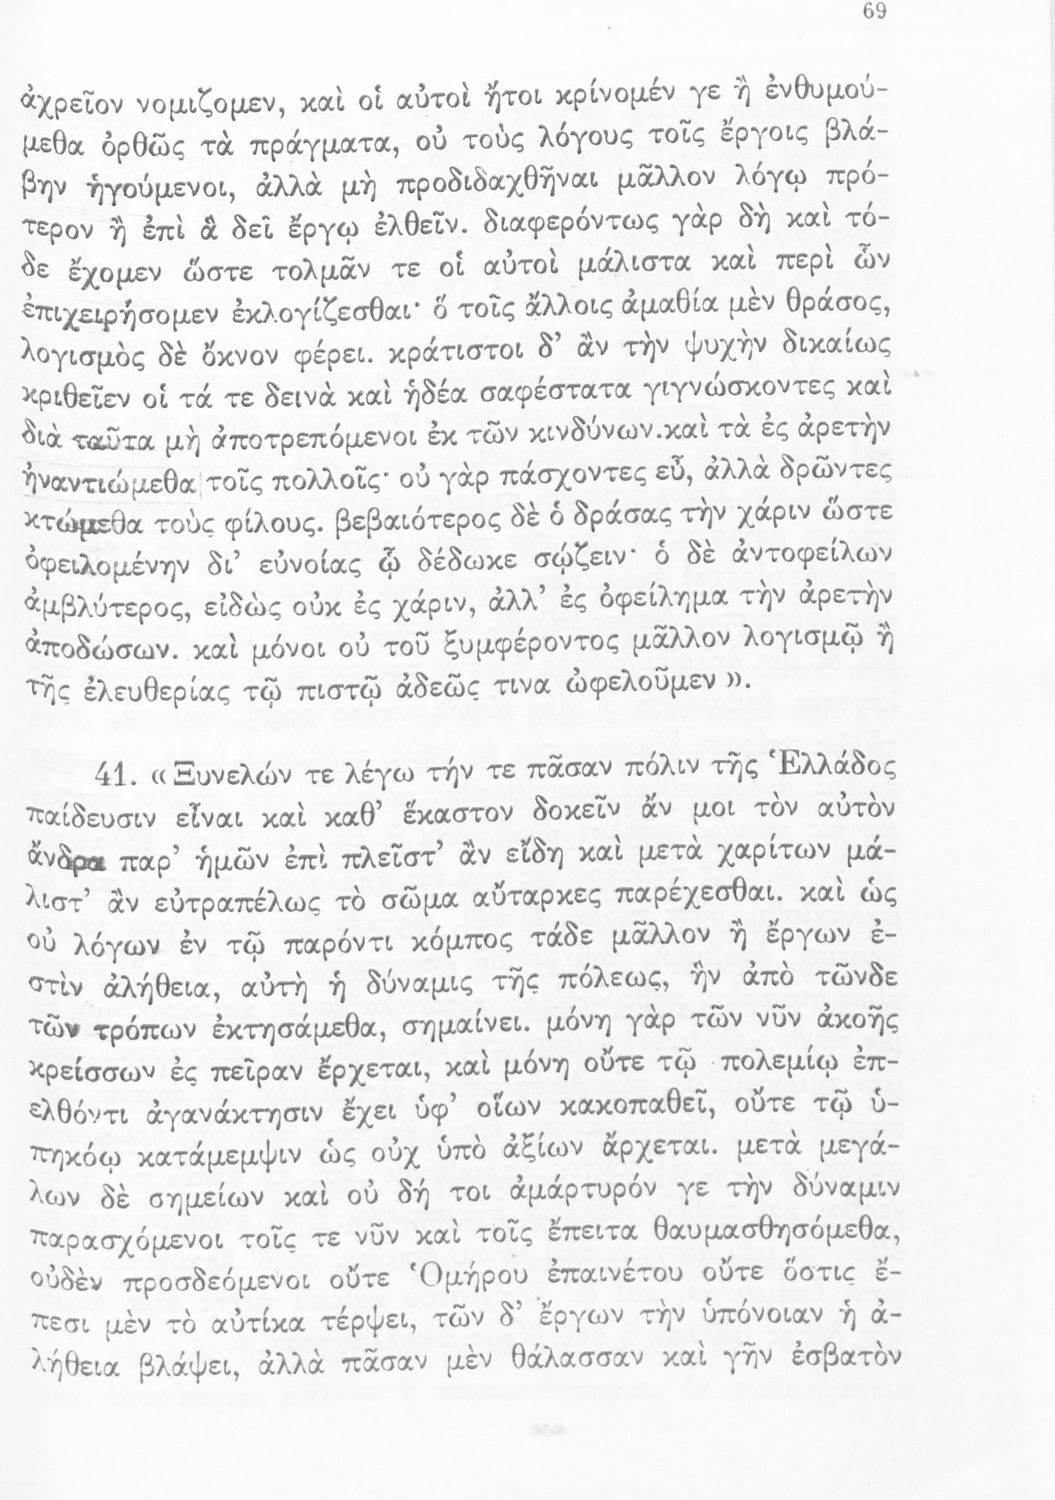 69
ἀχρεῖον νομιζομεν, καὶ οἱ αὐτοὶ ἤτοι κρίνομέν γε ἢ ἐνθυμού-
μεθα ὀρθῶς τὰ πράγματα, οὐ τοὺς λόγους τοῖς ἔργοις βλά-
βην ἡγούμενοι, ἀλλὰ μὴ προδιδαχθῆναι μᾶλλον λόγῳ πρό-
τερον ἢ ἐπὶ ἃ δεῖ ἔργῳ ἐλθεῖν. διαφερόντως γὰρ δὴ καὶ τό-
δε ἔχομεν ὥστε τολμᾶν τε οἱ αὐτοὶ μάλιστα καὶ περὶ ὧν
ἐπιχειρήσομεν ἐκλογίζεσθαι· ὅ τοῖς ἄλλοις ἀμαθία μὲν θράσος,
λογισμὸς δὲ ὄκνον φέρει. κράτιστοι δ’ ἂν τὴν ψυχὴν δικαίως
κριθεῖεν οἱ τά τε δεινὰ καὶ ἡδέα σαφέστατα γιγνώσκοντες καὶ
διὰ ταῦτα μὴ ἀποτρεπόμενοι ἐκ τῶν κινδύνων.καὶ τὰ ἐς ἀρετὴν
ἠναντιώμεθα τοῖς πολλοῖς· οὐ γὰρ πάσχοντες εὖ, ἀλλὰ δρῶντες
κτώμεθα τοὺς φίλους. βεβαιότερος δὲ ὁ δράσας τὴν χάριν ὥστε
ὀφειλομένην δι’ εὐνοίας ᾧ δέδωκε σῴζειν· ὁ δὲ ἀντοφείλων
ἀμβλύτερος, εἰδὼς οὐκ ἐς χάριν, ἀλλ’ ἐς ὀφείλημα τὴν ἀρετὴν
ἀποδώσων. καὶ μόνοι οὐ τοῦ ξυμφέροντος μᾶλλον λογισμῷ ἢ
τῆς ἐλευθερίας τῷ πιστῷ ἀδεῶς τινα ὠφελοῦμεν ».
41. « Ξυνελών τε λέγω τήν τε πᾶσαν πόλιν τῆς Ἑλλάδος
παίδευσιν εἶναι καὶ καθ’ ἕκαστον δοκεῖν ἄν μοι τὸν αὐτὸν
ἄνδρα παρ’ ἡμῶν ἐπὶ πλεῖστ’ ἂν εἴδη καὶ μετὰ χαρίτων μά-
λιστ’ ἂν εὐτραπέλως τὸ σῶμα αὔταρκες παρέχεσθαι. καὶ ὡς
οὐ λόγων ἐν τῷ παρόντι κόμπος τάδε μᾶλλον ἢ ἔργων ἐ-
στὶν ἀλήθεια, αὐτὴ ἡ δύναμις τῆς πόλεως, ἣν ἀπὸ τῶνδε
τῶν τρόπων ἐκτησάμεθα, σημαίνει. μόνη γὰρ τῶν νῦν ἀκοῆς
κρείσσων ἐς πεῖραν ἔρχεται, καὶ μόνη οὔτε τῷ πολεμίῳ ἐπ-
ελθόντι ἀγανάκτησιν ἔχει ὑφ’ οἵων κακοπαθεῖ, οὔτε τῷ ὑ-
πηκόῳ κατάμεμψιν ὡς οὐχ ὑπὸ ἀξίων ἄρχεται. μετὰ μεγά-
λων δὲ σημείων καὶ οὐ δή τοι ἀμάρτυρόν γε τὴν δύναμιν
παρασχόμενοι τοῖς τε νῦν καὶ τοῖς ἔπειτα θαυμασθησόμεθα,
οὐδὲν προσδεόμενοι οὔτε Ὁμήρου ἐπαινέτου οὔτε ὅστις ἔ-
πεσι μὲν τὸ αὐτίκα τέρψει, τῶν δ’ ἔργων τὴν ὑπόνοιαν ἡ ἀ-
λήθεια βλάψει, ἀλλὰ πᾶσαν μὲν θάλασσαν καὶ γῆν ἐσβατὸν